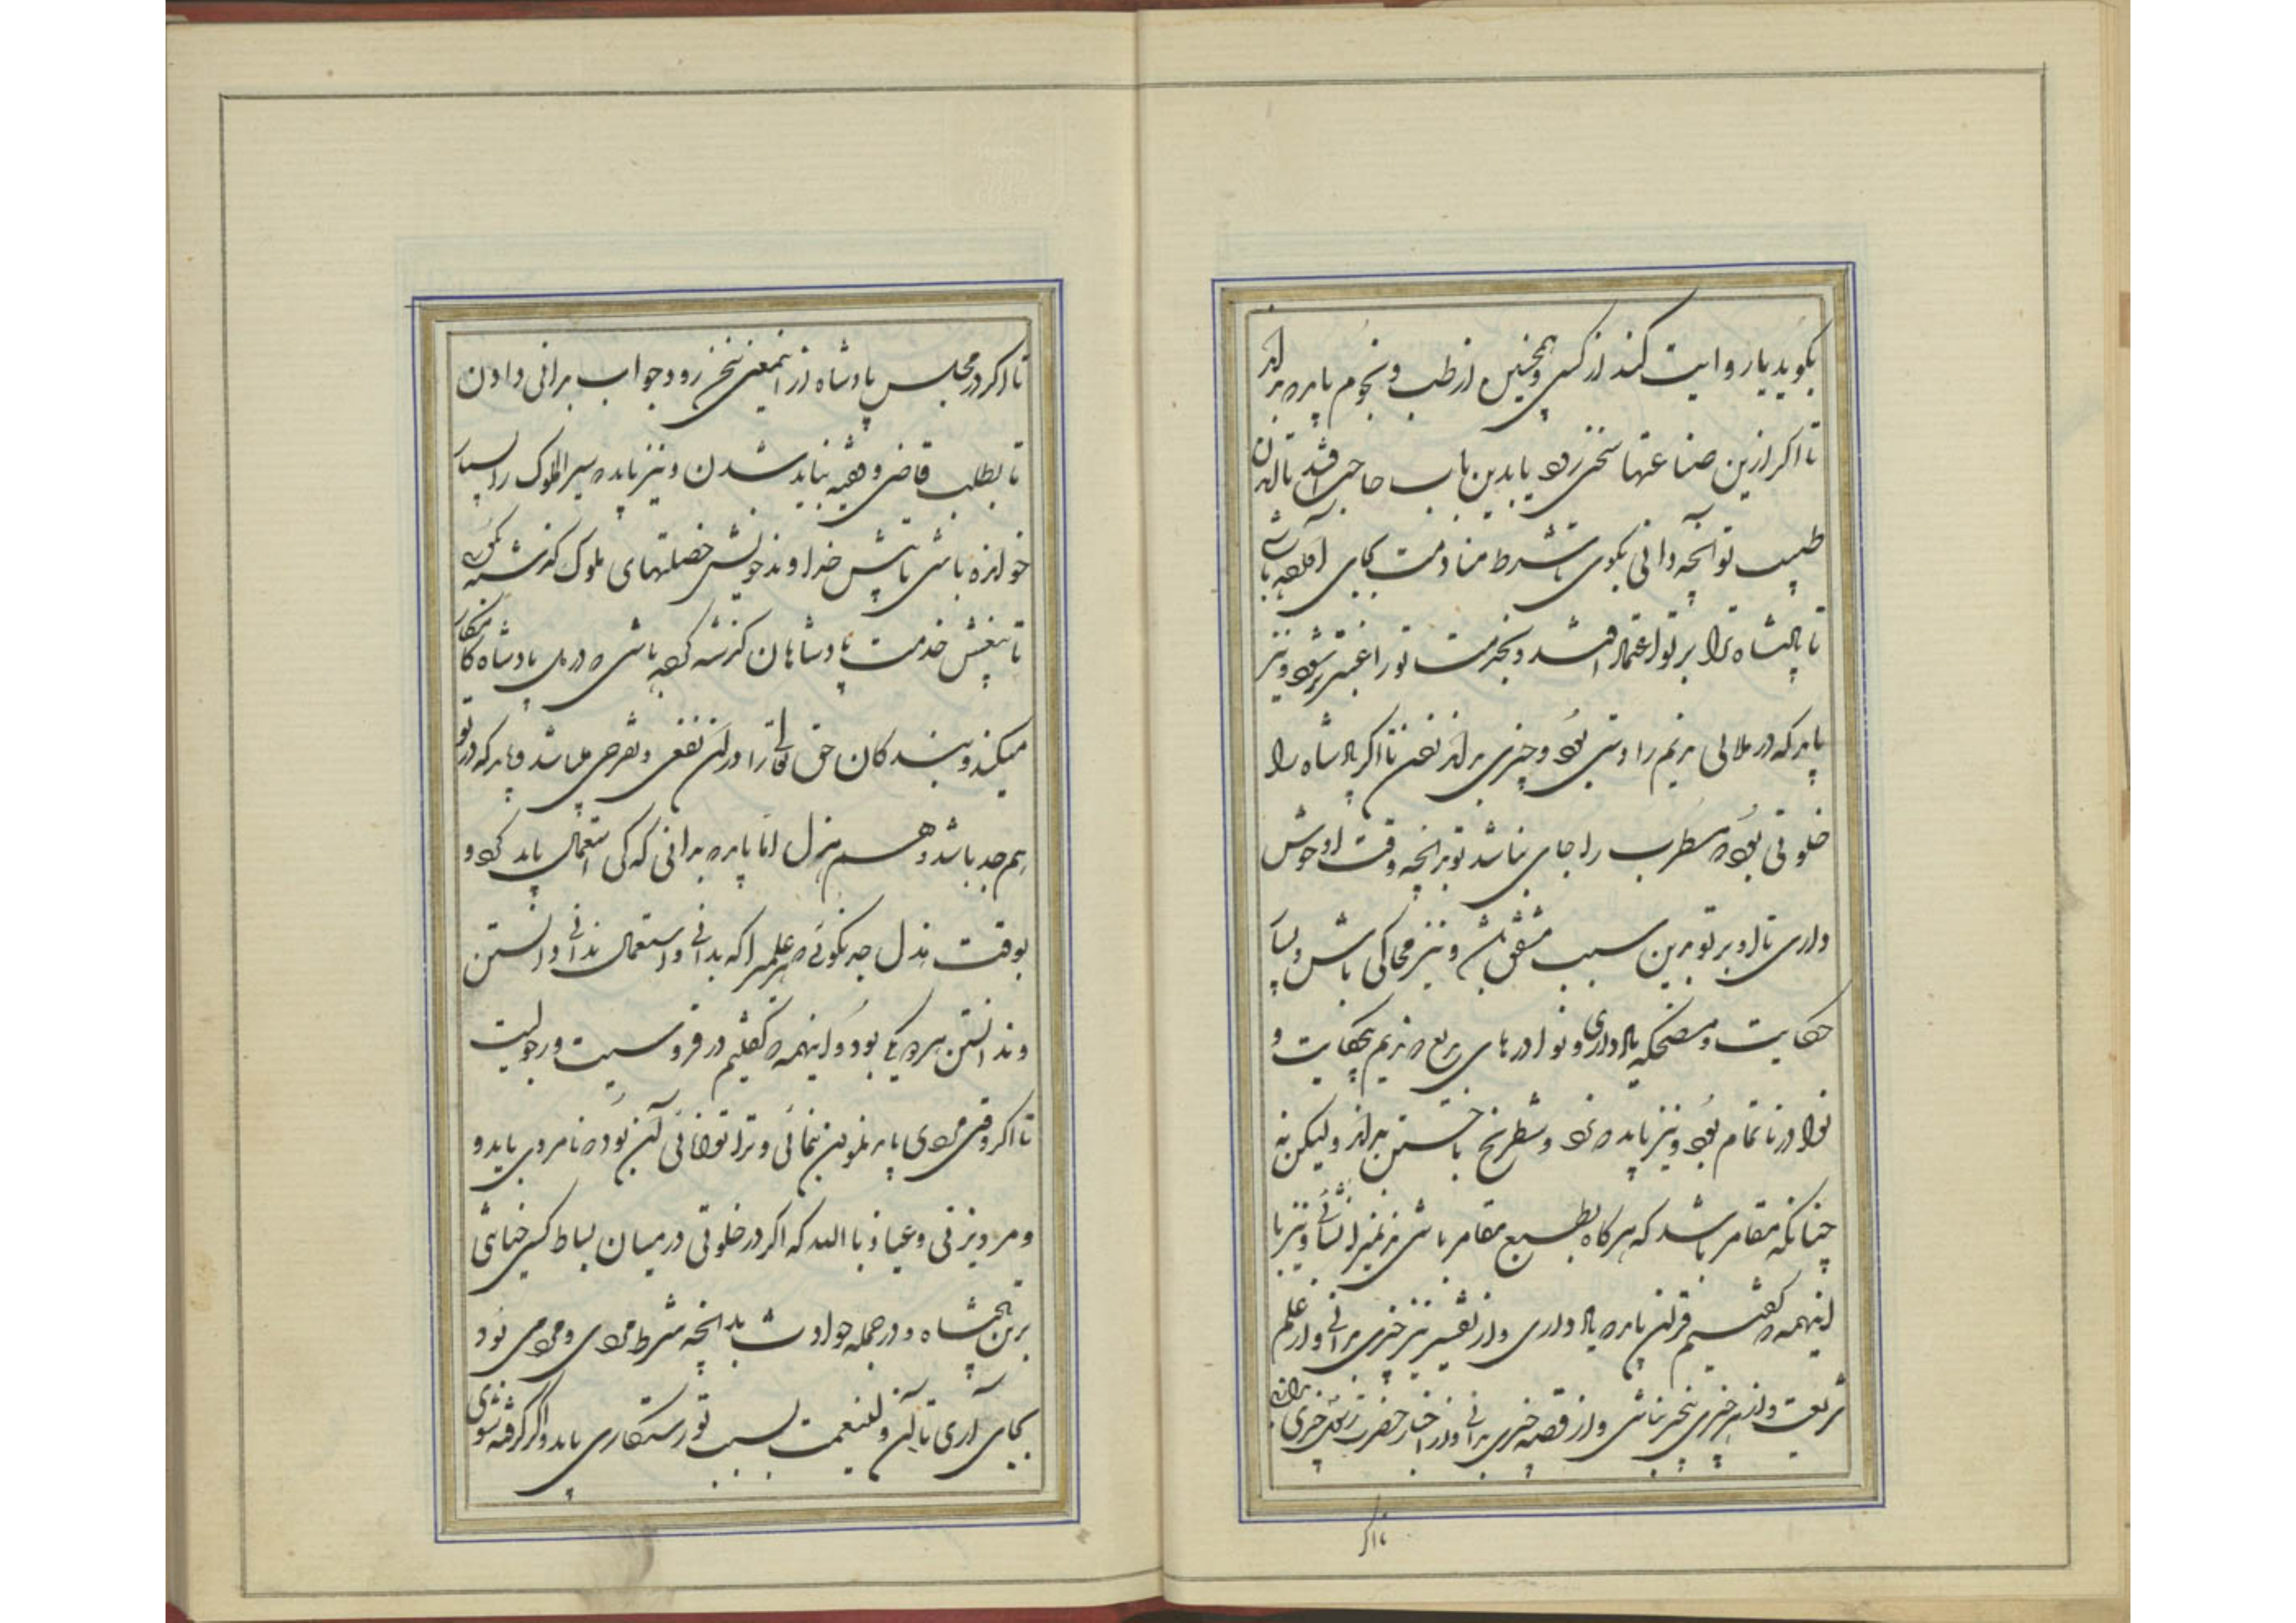 بکوید یا روایت کند از کسی و همچنین از طب و نجوم باید که بداند
تا اکر ازین صناعتها سخنی رود یا بدین باب حاجت افتد تا آمدن
طبیب تو آنچه دانی بکوی تا شرط منادمت بجای آورده باشی
تا پادشاه را بر تو اعتماد افتد و بخدمت تو راغب‌تر شود و نیز
باید که در ملاهی ترا دستی بود و چیزی بدانی زدن تا اکر پادشاه را
خلوتی بود که مطرب را جای نباشد تو بدانچه وقت او خوش
داری تا او بر تو بدین سبب مشفق باشد و نیز محاکی باش و بسیار
حکایت و مضحکه یاد داری و نوادرهای بدیع که ندیم بیحکایت و
نوادر ناتمام بود و نیز باید که نرد و شطرنج باختن بدانی ولیکن نه
چنانکه مقامر باشد که هر کاه بطبع مقامر باشی ندیمی را نشائی و نیز با
اینهمه که کفتیم قرآن باید که یاد داری و از تفسیر نیز چیزی بدانی و از علم
شریعت و از هر چیزی بیخبر نباشی و از قصه چیزی بدانی و از اخبار حضرت رسول چیزی بدانی
تا اکر
تا اکر در مجلس پادشاه از اینمعنی سخن رود جواب بدانی دادن
تا بطلب قاضی و فقیه نباید شدن و نیز باید که سیر الملوک را بسیار
خوانده باشی تا پیش خداوند خویش خصلتهای ملوک کذشته بکوئی
تا بنفس خدمت پادشاهان کذشته کرده باشی که در دل پادشاه کار
میکند و بندکان حق تعالی را در آن نفعی و تفرجی میباشد و باید که در تو
هم جد باشد و هم هزل اما باید که بدانی که کی استعمال باید کرد و
بوقت هزل جد نکوئی که هر علمی را که بدانی و استعمال ندانی دانستن
و ندانستن هر دو یکی بود و اینهمه که کفتیم در فروسیت و رجولیت
تا اکر وقتی مردی باید نمودن بنمائی و ترا توانائی آن بود که با مردی باید و
و مرد بزنی و عیاذ با الله که اکر در خلوتی در میان بساط کسی خیانتی
برین پادشاه و در جمله حوادث بدانچه شرط مردی و مردمی بود
بجای آری تا آن ولینعمت بسبب تو رستکاری یابد و اکر کرفته شوی